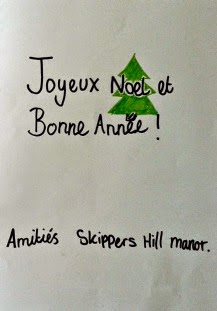 Joyeux Noël et
Bonne Année !
Amitiés Skippers Hill manor.